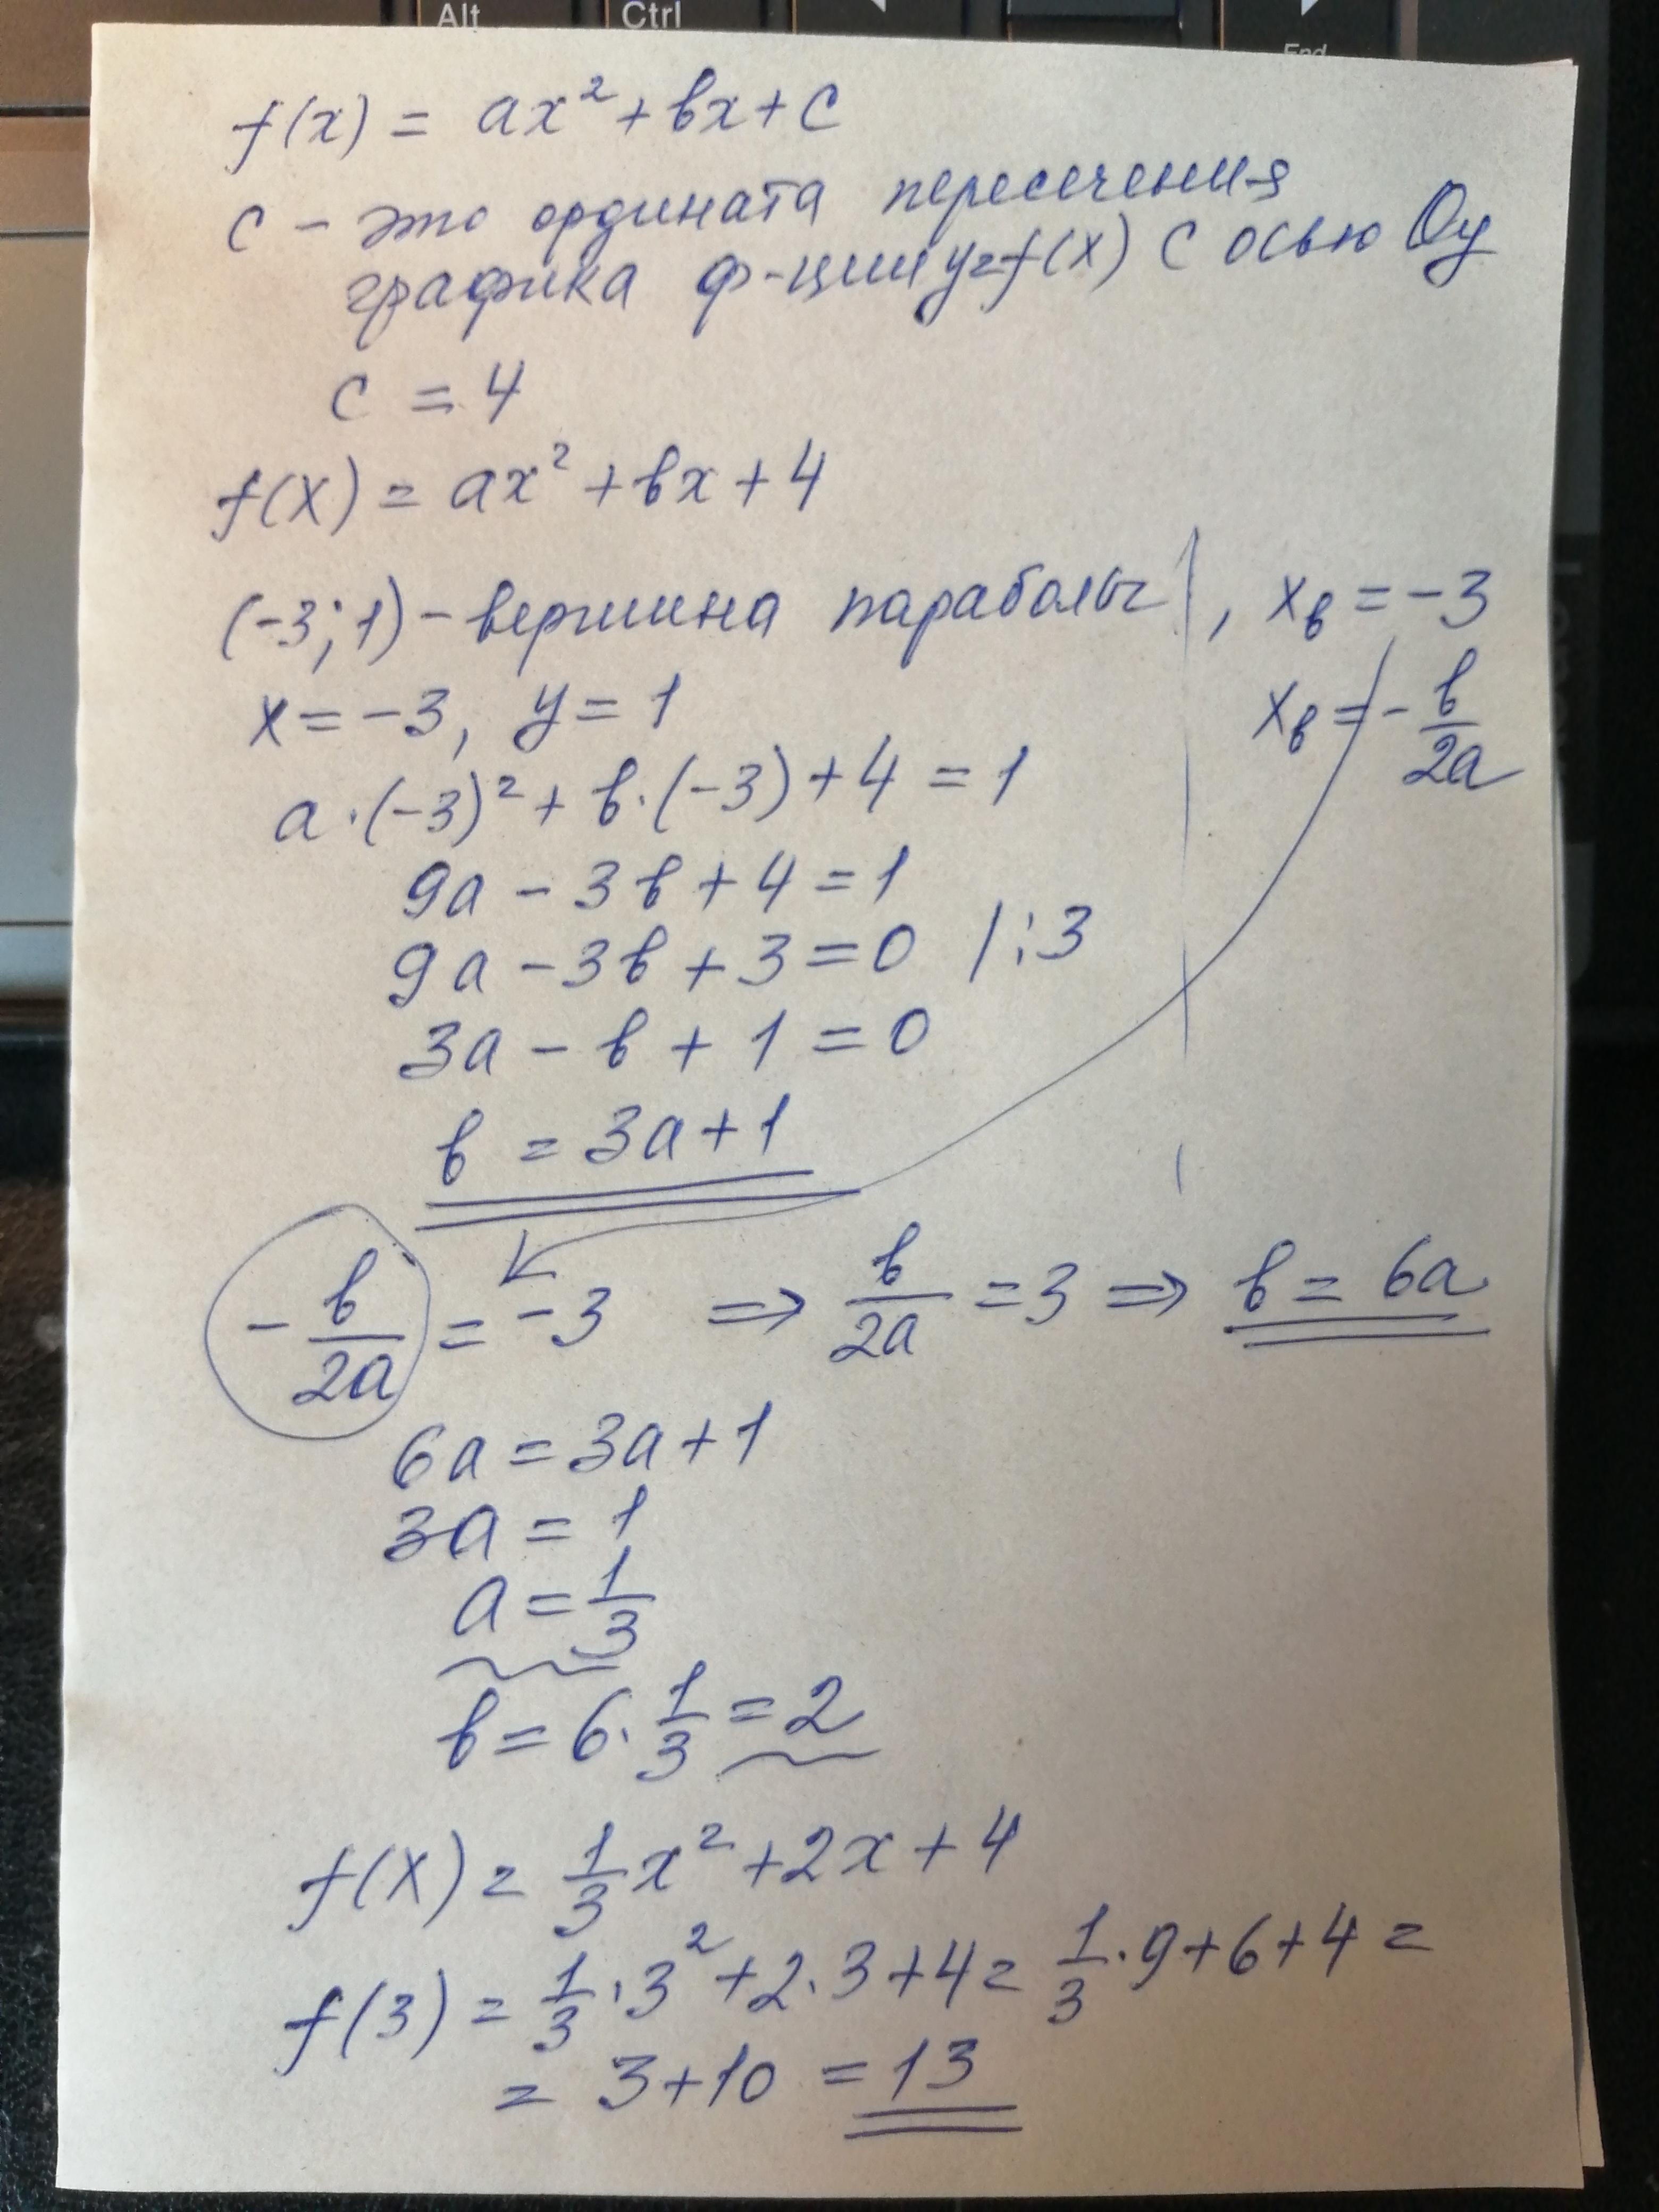 Alt Ctrl End
f(x) = ax² + bx + c
c – это ордината пересечения
графика ф-ции y=f(x) с осью Oy
c = 4
f(x) = ax² + bx + 4
(-3; 1) – вершина параболы, xв = -3
x = -3, y = 1 xв = - b/2a
a·(-3)² + b·(-3) + 4 = 1
9a - 3b + 4 = 1
9a - 3b + 3 = 0 /:3
3a - b + 1 = 0
b = 3a + 1
- b/2a = -3 ⇒ b/2a = 3 ⇒ b = 6a
6a = 3a + 1
3a = 1
a = 1/3
b = 6·1/3 = 2
f(x) = 1/3 x² + 2x + 4
f(3) = 1/3·3² + 2·3 + 4 = 1/3·9 + 6 + 4 =
= 3 + 10 = 13